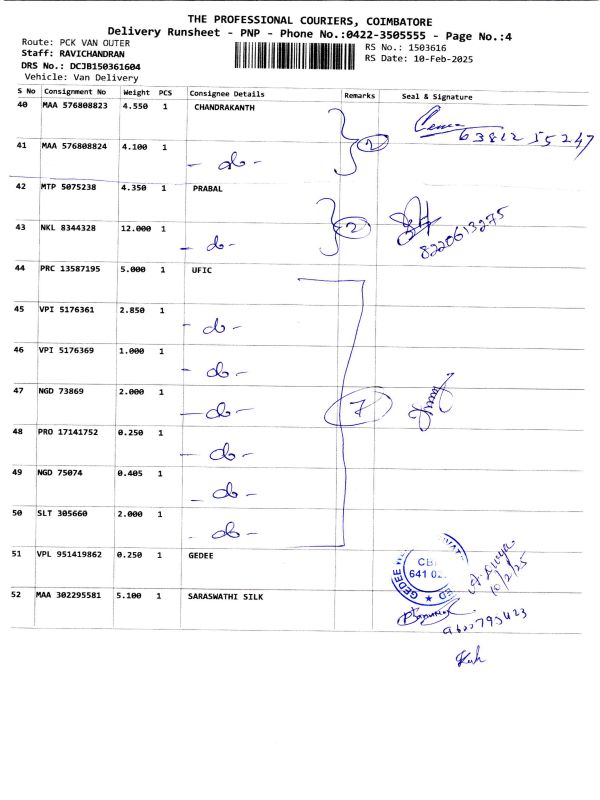 THE PROFESSIONAL COURIERS, COIMBATORE
Delivery Runsheet - PNP - Phone No.:0422-3505555 - Page No.:4
Route: PCK VAN OUTER
RS No.: 1503616
Staff: RAVICHANDRAN
RS Date: 10-Feb-2025
DRS No.: DCJB150361604
Vehicle: Van Delivery
S No Consignment No Weight PCS Consignee Details Remarks Seal & Signature
40 MAA 576808823 4.550 1 CHANDRAKANTH
2 6381255247
41 MAA 576808824 4.100 1 - do -
42 MTP 5075238 4.350 1 PRABAL
2 8220613275
43 NKL 8344328 12.000 1 - do -
44 PRC 13587195 5.000 1 UFIC
45 VPI 5176361 2.850 1 - do -
46 VPI 5176369 1.000 1 - do -
47 NGD 73869 2.000 1 - do - 7
48 PRO 17141752 0.250 1 - do -
49 NGD 75074 0.405 1 - do -
50 SLT 305660 2.000 1 - do -
51 VPL 951419862 0.250 1 GEDEE
GEDEE
641 0
10/2/25
52 MAA 302295581 5.100 1 SARASWATHI SILK